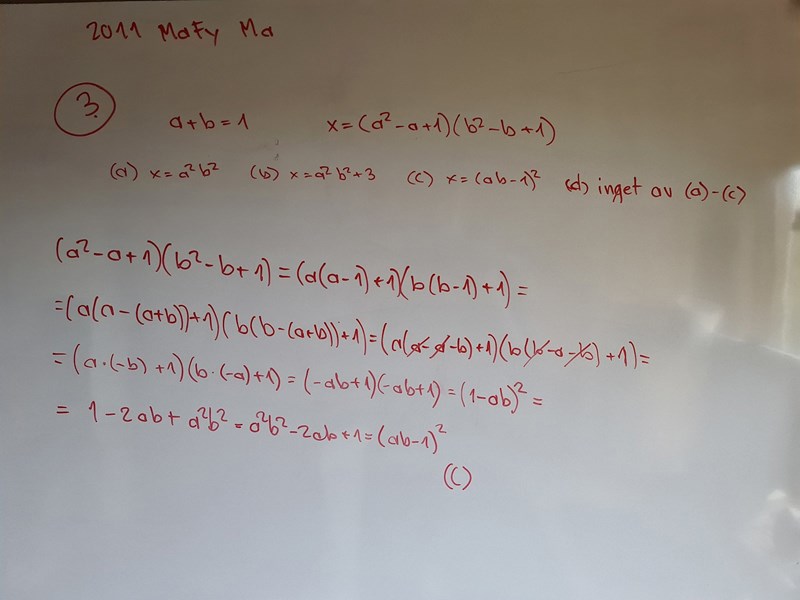 2011 MaFy Ma
3. a+b=1 x=(a²-a+1)(b²-b+1)
(a) x=a²b² (b) x=a²b²+3 (c) x=(ab-1)² (d) inget av (a)-(c)
(a²-a+1)(b²-b+1)=(a(a-1)+1)(b(b-1)+1)=
=(a(a-(a+b))+1)(b(b-(a+b))+1)=(a(a-a-b)+1)(b(b-a-b)+1)=
=(a·(-b)+1)(b·(-a)+1)=(-ab+1)(-ab+1)=(1-ab)²=
= 1-2ab+a²b²=a²b²-2ab+1=(ab-1)²
(C)